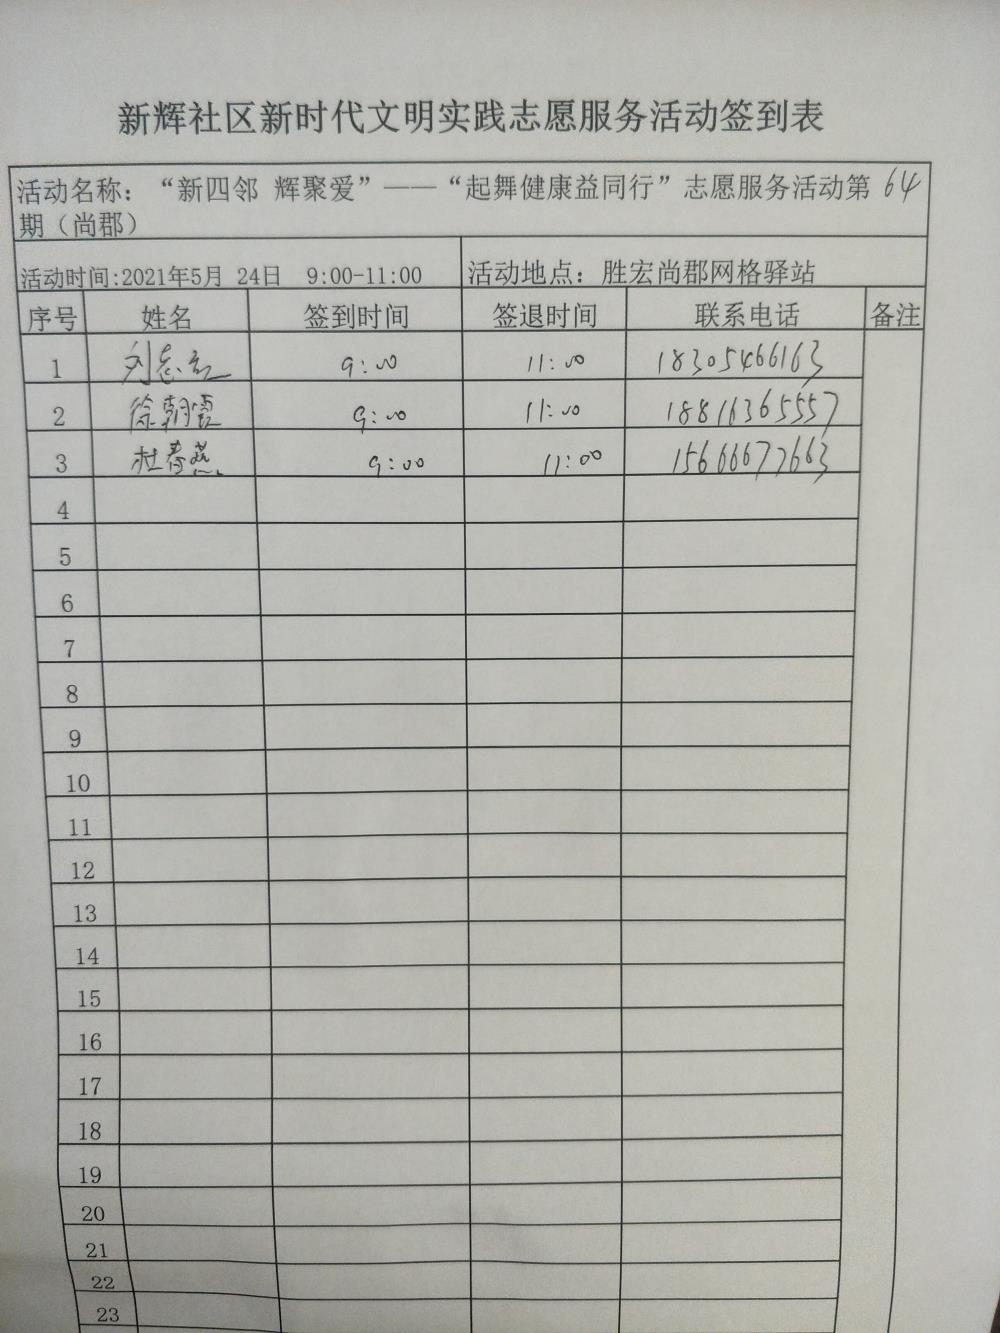 新辉社区新时代文明实践志愿服务活动签到表
活动名称：“新四邻 辉聚爱”——“起舞健康益同行”志愿服务活动第 64
期（尚郡）
活动时间:2021年5月 24日 9:00-11:00 活动地点：胜宏尚郡网格驿站
序号 姓名 签到时间 签退时间 联系电话 备注
1 刘志红 9:00 11:00 18305466163
2 徐朝霞 9:00 11:00 18816365557
3 杜春燕 9:00 11:00 15666677663
4
5
6
7
8
9
10
11
12
13
14
15
16
17
18
19
20
21
22
23